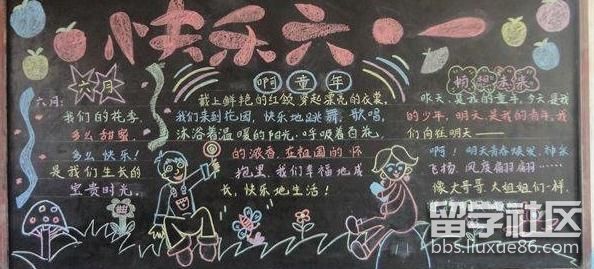 快乐六·一
六月
六月:
我们的花季,
多么甜蜜,
多么快乐!
是我们生长的
宝贵时光。
啊童年
戴上鲜艳的红领 穿起漂亮的衣裳,
我们来到花园,快乐地跳舞、歌唱,
沐浴着温暖的阳光,呼吸着百花
的浓香,在祖国的怀
抱里,我们幸福地成
长,快乐地生活!
畅想未来
昨天,是我的童年,今天是我
的少年,明天,是我的青年,我
们向往明天——
啊!明天青春焕发,神采
飞扬,风度翩翩……
像大哥哥、大姐姐们一样,
留学社区
bbs.liuxue86.com